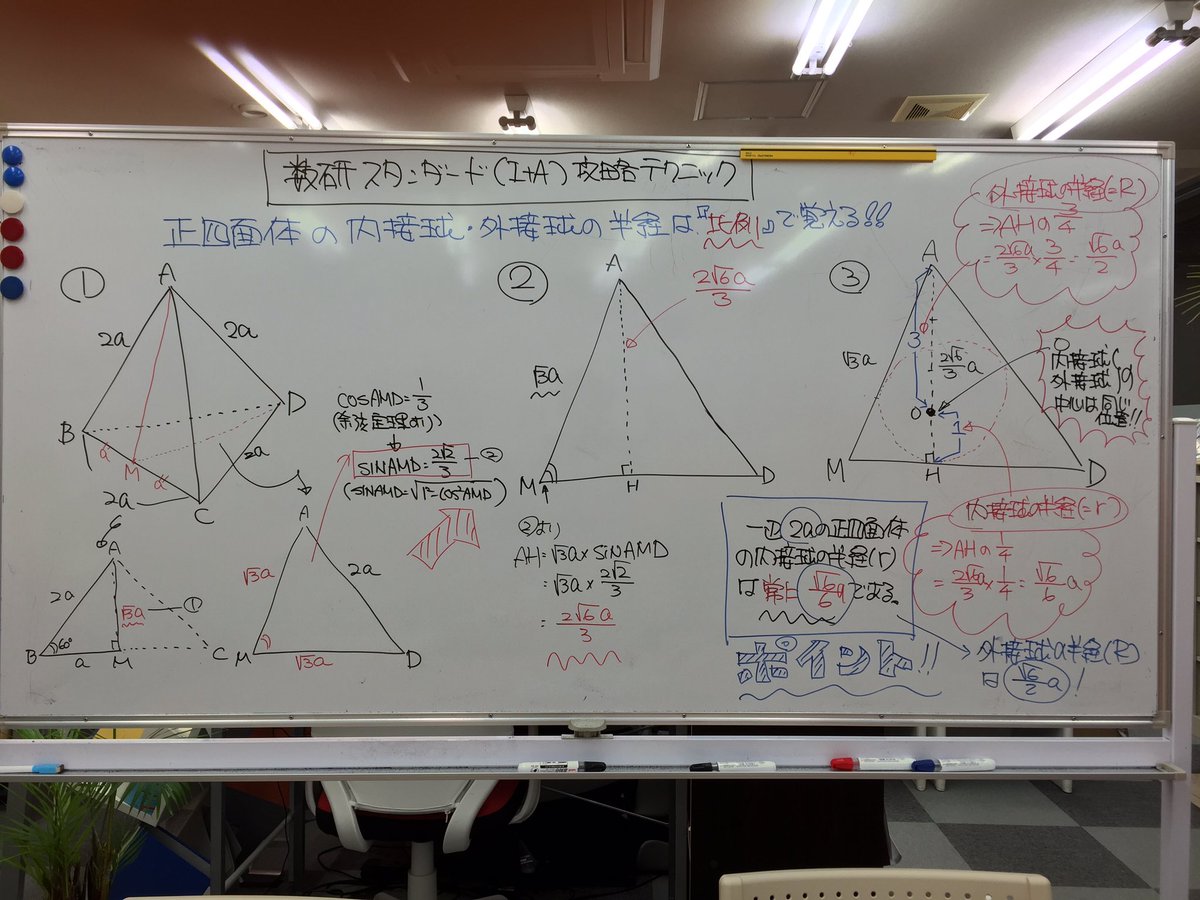 数研スタンダード(I+A)攻略テクニック
正四面体の内接球・外接球の半径は『比例』で覚える!!
①
A
2a
2a
B
D
a
M
a
2a
2a
C
A
2a
√3a
①
60°
B
a
M
C
COSAMD=1/3
(余弦定理より)
↓
SINAMD=2√2/3 ─②
(SINAMD=√1²-COS²AMD)
A
√3a
2a
M
√3a
D
②
A
2√6a/3
√3a
M
H
D
②より
AH=√3a×SINAMD
=√3a×2√2/3
=2√6a/3
③
A
√3a
3
2√6/3a
O
1
M
H
D
外接球の半径(=R)
⇒AHの3/4
=2√6a/3×3/4=√6a/2
内接球
外接球
の
中心は同じ
位置!!
内接球の半径(=r)
⇒AHの1/4
=2√6a/3×1/4=√6/6a
一辺2aの正四面体
の内接球の半径(r)
は常に√6/6aである。
ポイント!!
外接球の半径(R)
は√6/2a!